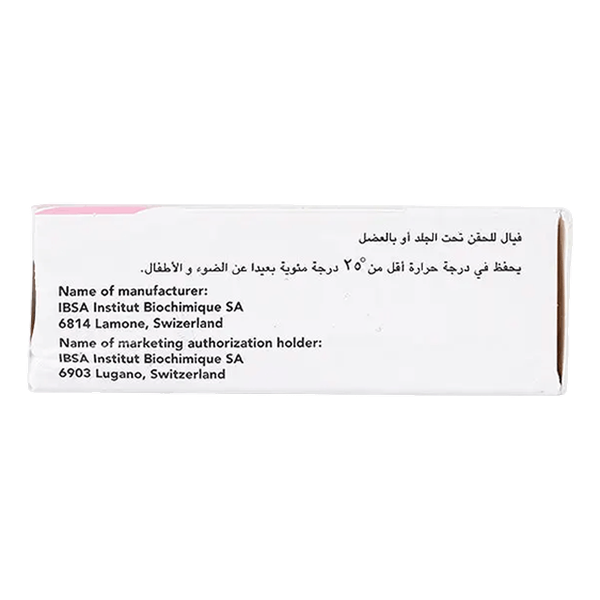 فيال للحقن تحت الجلد أو بالعضل
يحفظ في درجة حرارة أقل من ٢٥° درجة مئوية بعيدا عن الضوء و الأطفال.
Name of manufacturer:
IBSA Institut Biochimique SA
6814 Lamone, Swizerland
Name of marketing authorization holder:
IBSA Institut Biochimique SA
6903 Lugano, Switzerland